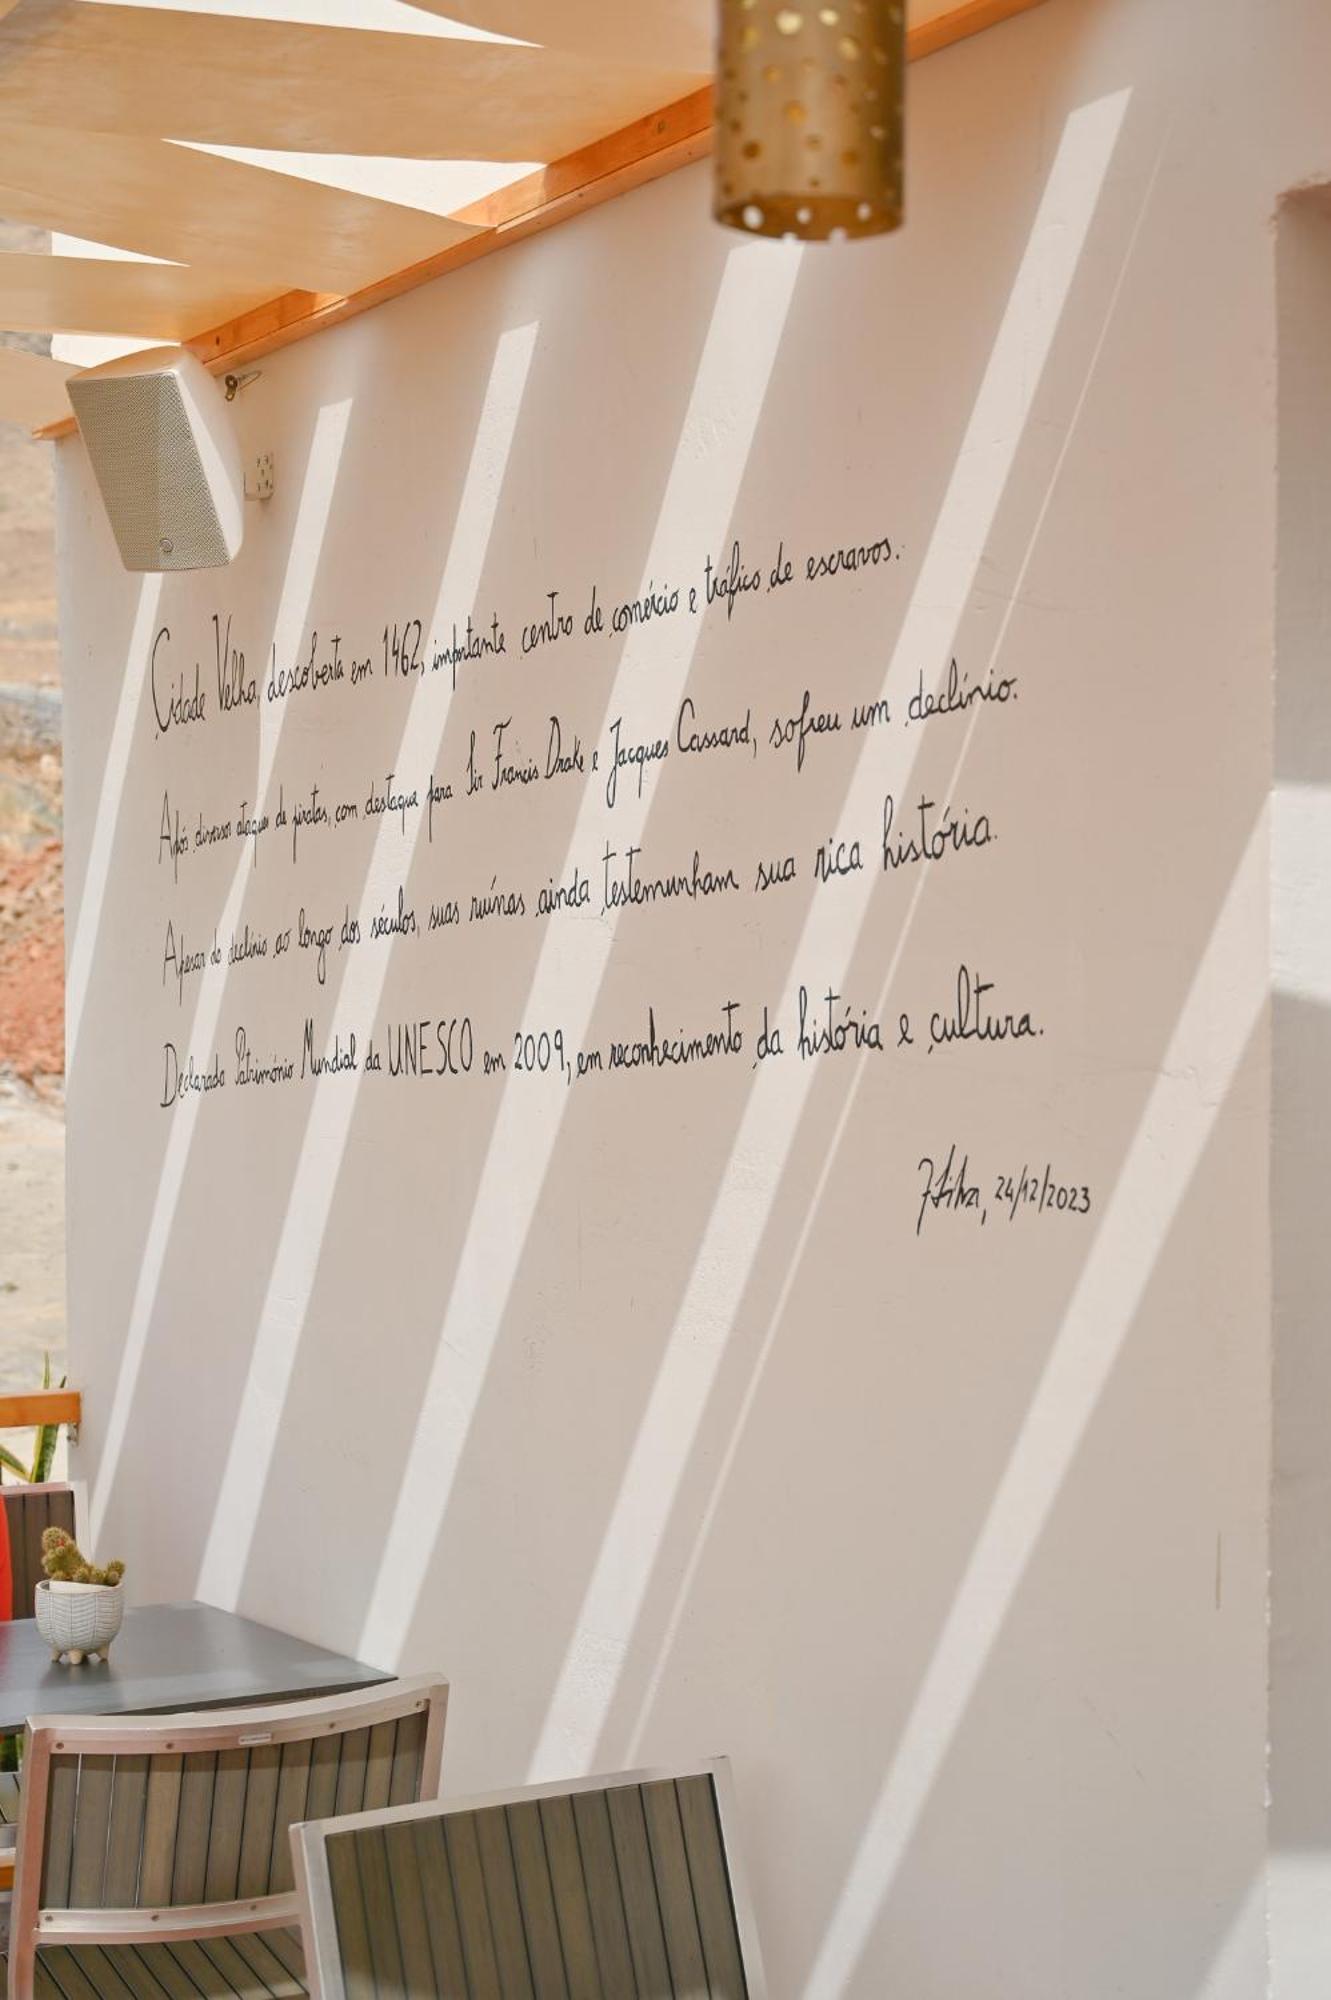 Cidade Velha, descoberta em 1462, importante centro de comércio e tráfico de escravos.
Após diversos ataques de piratas, com destaque para Sir Francis Drake e Jacques Cassard, sofreu um declínio.
Apesar do declínio ao longo dos séculos, suas ruínas ainda testemunham sua rica história.
Declarada Património Mundial da UNESCO em 2009, em reconhecimento da história e cultura.
JSilva, 24/12/2023